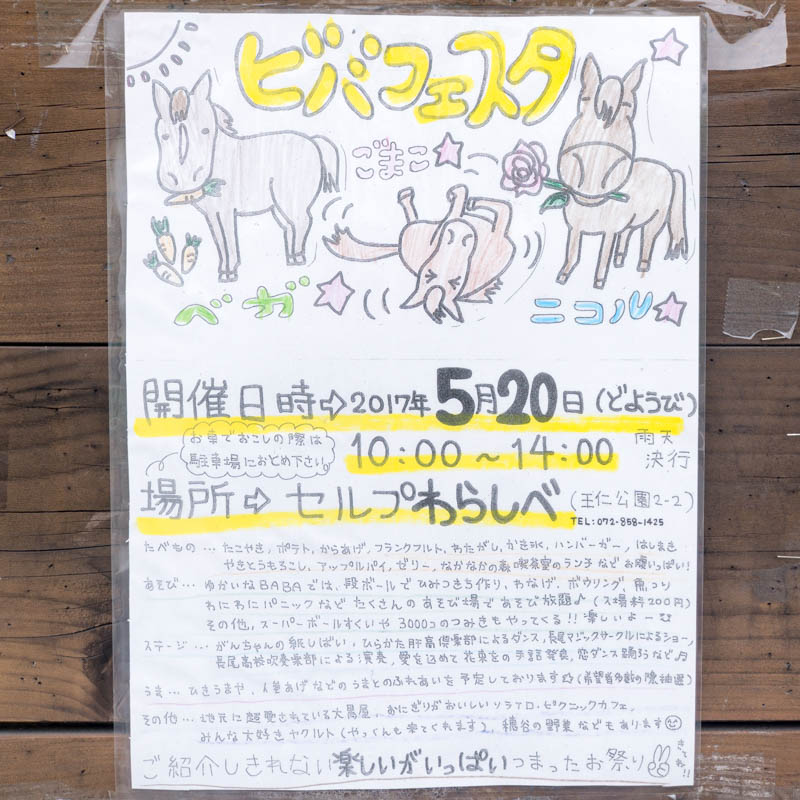 ビバフェスタ
ごまこ
ベガ
ニコル
開催日時⇨2017年5月20日(どようび)
お車でおこしの際は
駐車場におとめ下さい。
10:00～14:00
雨天
決行
場所⇨セルプわらしべ(王仁公園2-2)
TEL:072-858-1425
たべもの…たこやき,ポテト,からあげ,フランクフルト,わたがし,かき氷,ハンバーガー,はしまき
やきとうもろこし,アップルパイ,ゼリー,なかなかの森喫茶室のランチなどお腹いっぱい!
あそび…ゆかいなBABAでは,段ボールでひみつきち作り,わなげ,ボウリング,魚つり
わにわにパニックなどたくさんのあそび場であそび放題♪(入場料200円)
その他,スーパーボールすくいや3000コのつみきもやってくる!!楽しいよー
ステージ…がんちゃんの紙しばい,ひらかた肝高倶楽部によるダンス,長尾マジックサークルによるショー,
長尾高校吹奏楽部による演奏,愛を込めて花束をの手話発表,恋ダンス踊ろうなど♬
うま…ひきうまや,人参あげなどのうまとのふれあいを予定しております☆(希望者多数の際抽選)
その他…地元に超愛されている大黒屋,おにぎりがおいしいソラアロ・ピクニックカフェ,
みんな大好きヤクルト(やっくんも来てくれます♪),穂谷の野菜などもあります
ご紹介しきれない楽しいがいっぱいつまったお祭り
きてね!!